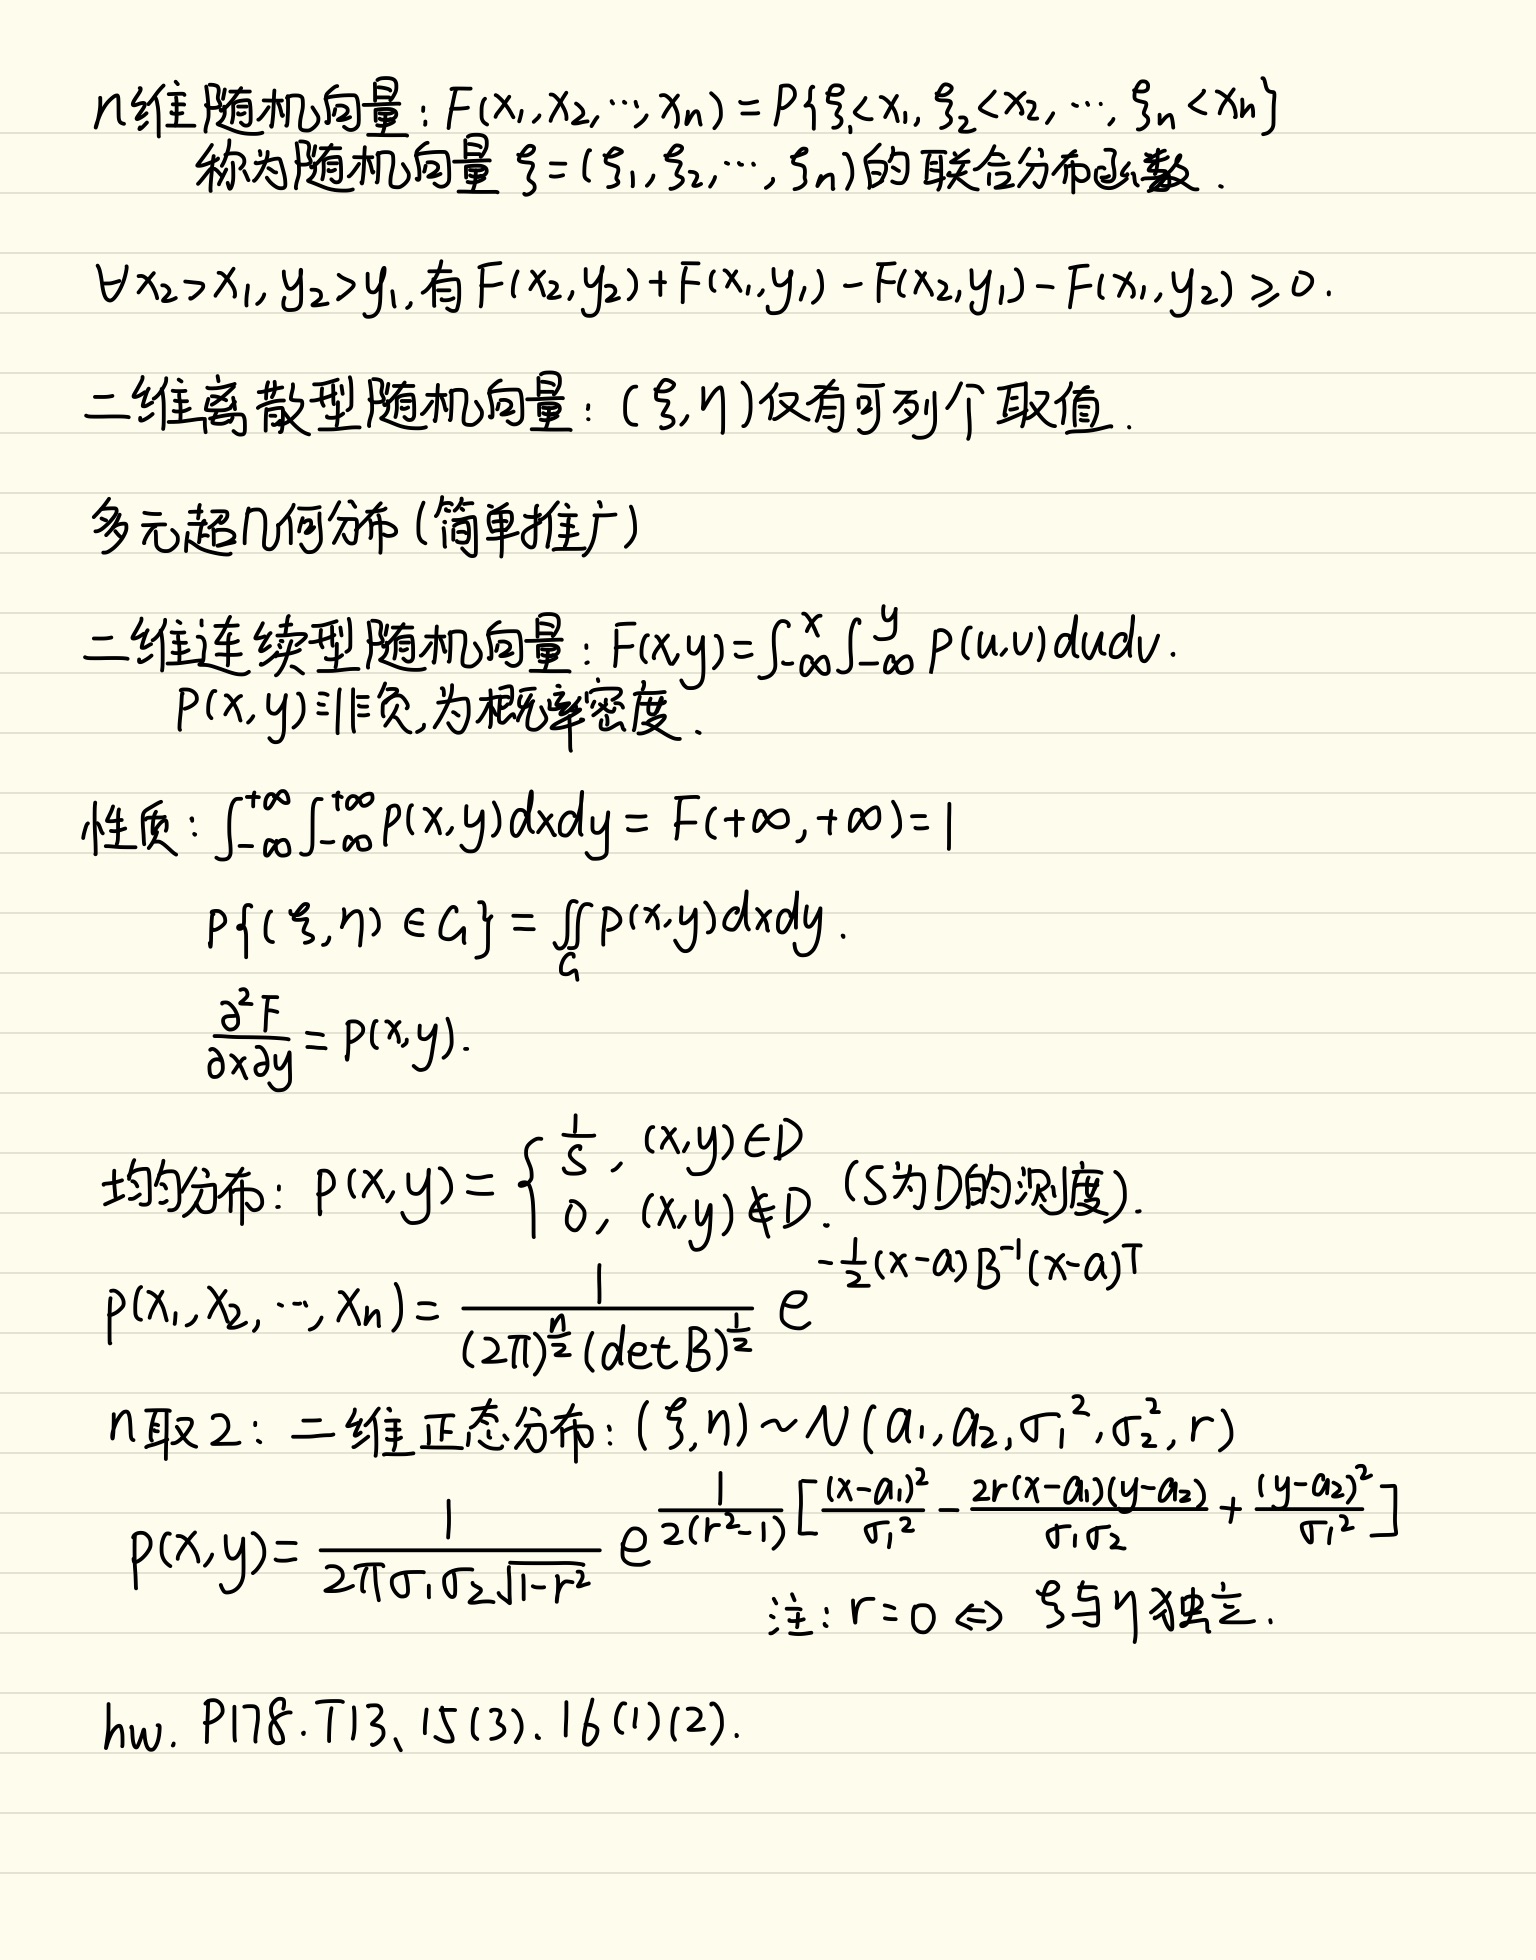 n维随机向量: F(x₁,x₂,⋯,xₙ) = P{ξ₁<x₁, ξ₂<x₂, ⋯, ξₙ<xₙ}
称为随机向量 ξ=(ξ₁,ξ₂,⋯,ξₙ)的联合分布函数.
∀x₂>x₁, y₂>y₁, 有 F(x₂,y₂)+F(x₁,y₁)-F(x₂,y₁)-F(x₁,y₂)≥0.
二维离散型随机向量: (ξ,η)仅有可列个取值.
多元超几何分布(简单推广)
二维连续型随机向量: F(x,y)=∫_{-∞}^{x}∫_{-∞}^{y} p(u,v)dudv.
p(x,y)非负,为概率密度.
性质: ∫_{-∞}^{+∞}∫_{-∞}^{+∞} p(x,y)dxdy = F(+∞,+∞)=1
P{(ξ,η)∈G} = ∬_G p(x,y)dxdy.
∂²F/∂x∂y = p(x,y).
均匀分布: p(x,y) = { 1/S, (x,y)∈D; 0, (x,y)∉D. (S为D的测度).
p(x₁,x₂,⋯,xₙ) = 1/((2π)^{n/2}(det B)^{1/2}) e^{-1/2(x-a)B^{-1}(x-a)^T}
n取2: 二维正态分布: (ξ,η)~N(a₁,a₂,σ₁²,σ₂²,r)
p(x,y) = 1/(2πσ₁σ₂√(1-r²)) e^{1/(2(r²-1))[(x-a₁)²/σ₁² - 2r(x-a₁)(y-a₂)/(σ₁σ₂) + (y-a₂)²/σ₁²]}
注: r=0 ⇔ ξ与η独立.
hw. P178. T13、15(3). 16(1)(2).